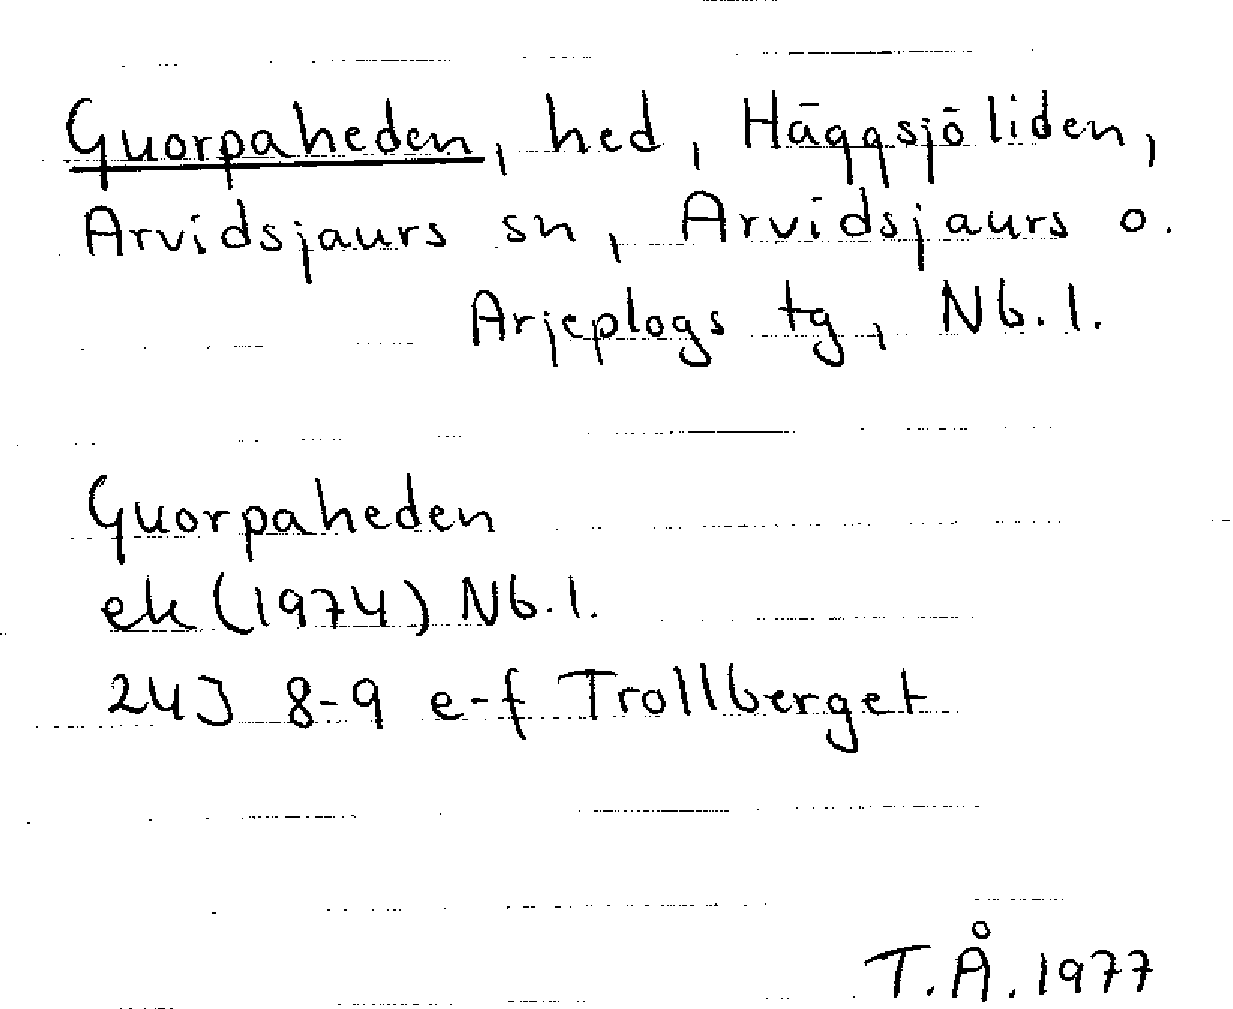 Guorpaheden, hed, Häggsjöliden,
Arvidsjaurs sn, Arvidsjaurs o.
Arjeplogs tg, Nb. l.
Guorpaheden
ek (1974) Nb. l.
24J 8-9 e-f Trollberget
T.Å. 1977